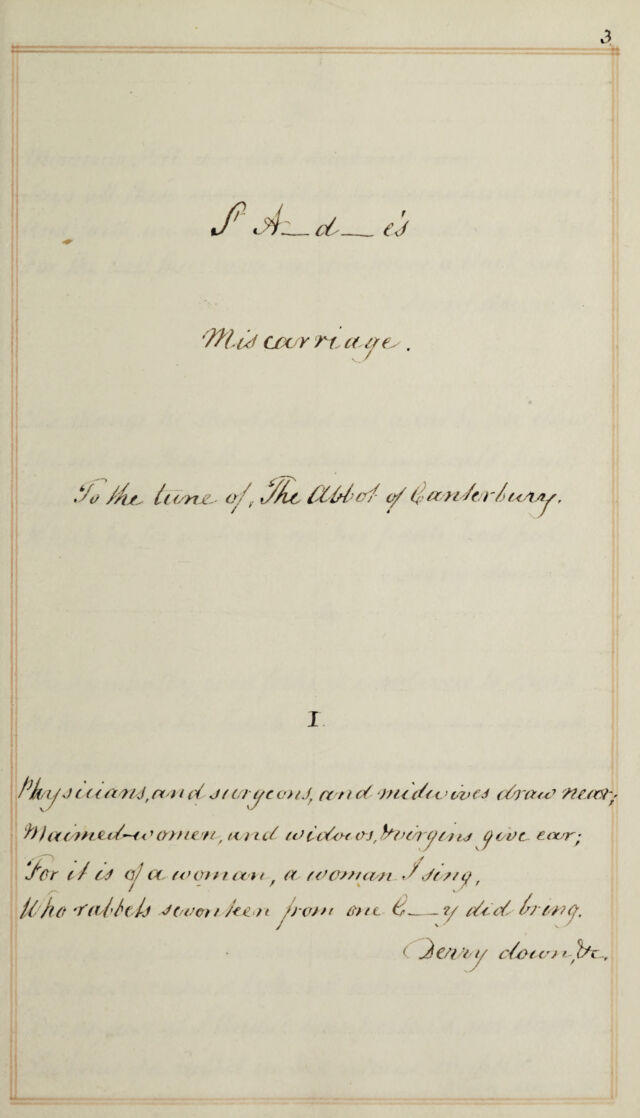 3
St A—d—e's
Miscarriage.
To the tune of, The Abbot of Canterbury.
I.
Physicians, and surgeons, and midwives draw near;
Maimed-women, and widows, & virgins give ear;
For it is of a woman, a woman I sing,
Who rabbets seventeen from one C—y did bring.
Derry down, &c.